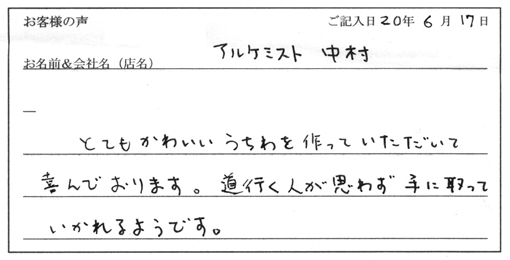 お客様の声 ご記入日20年 6月 17日
お名前&会社名（店名） アルケミスト 中村
とてもかわいいうちわを作っていただいて
喜んでおります。道行く人が思わず手に取って
いかれるようです。